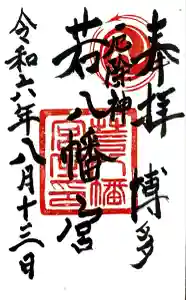 奉拝 博多
厄除神
若八幡宮
令和六年八月十三日